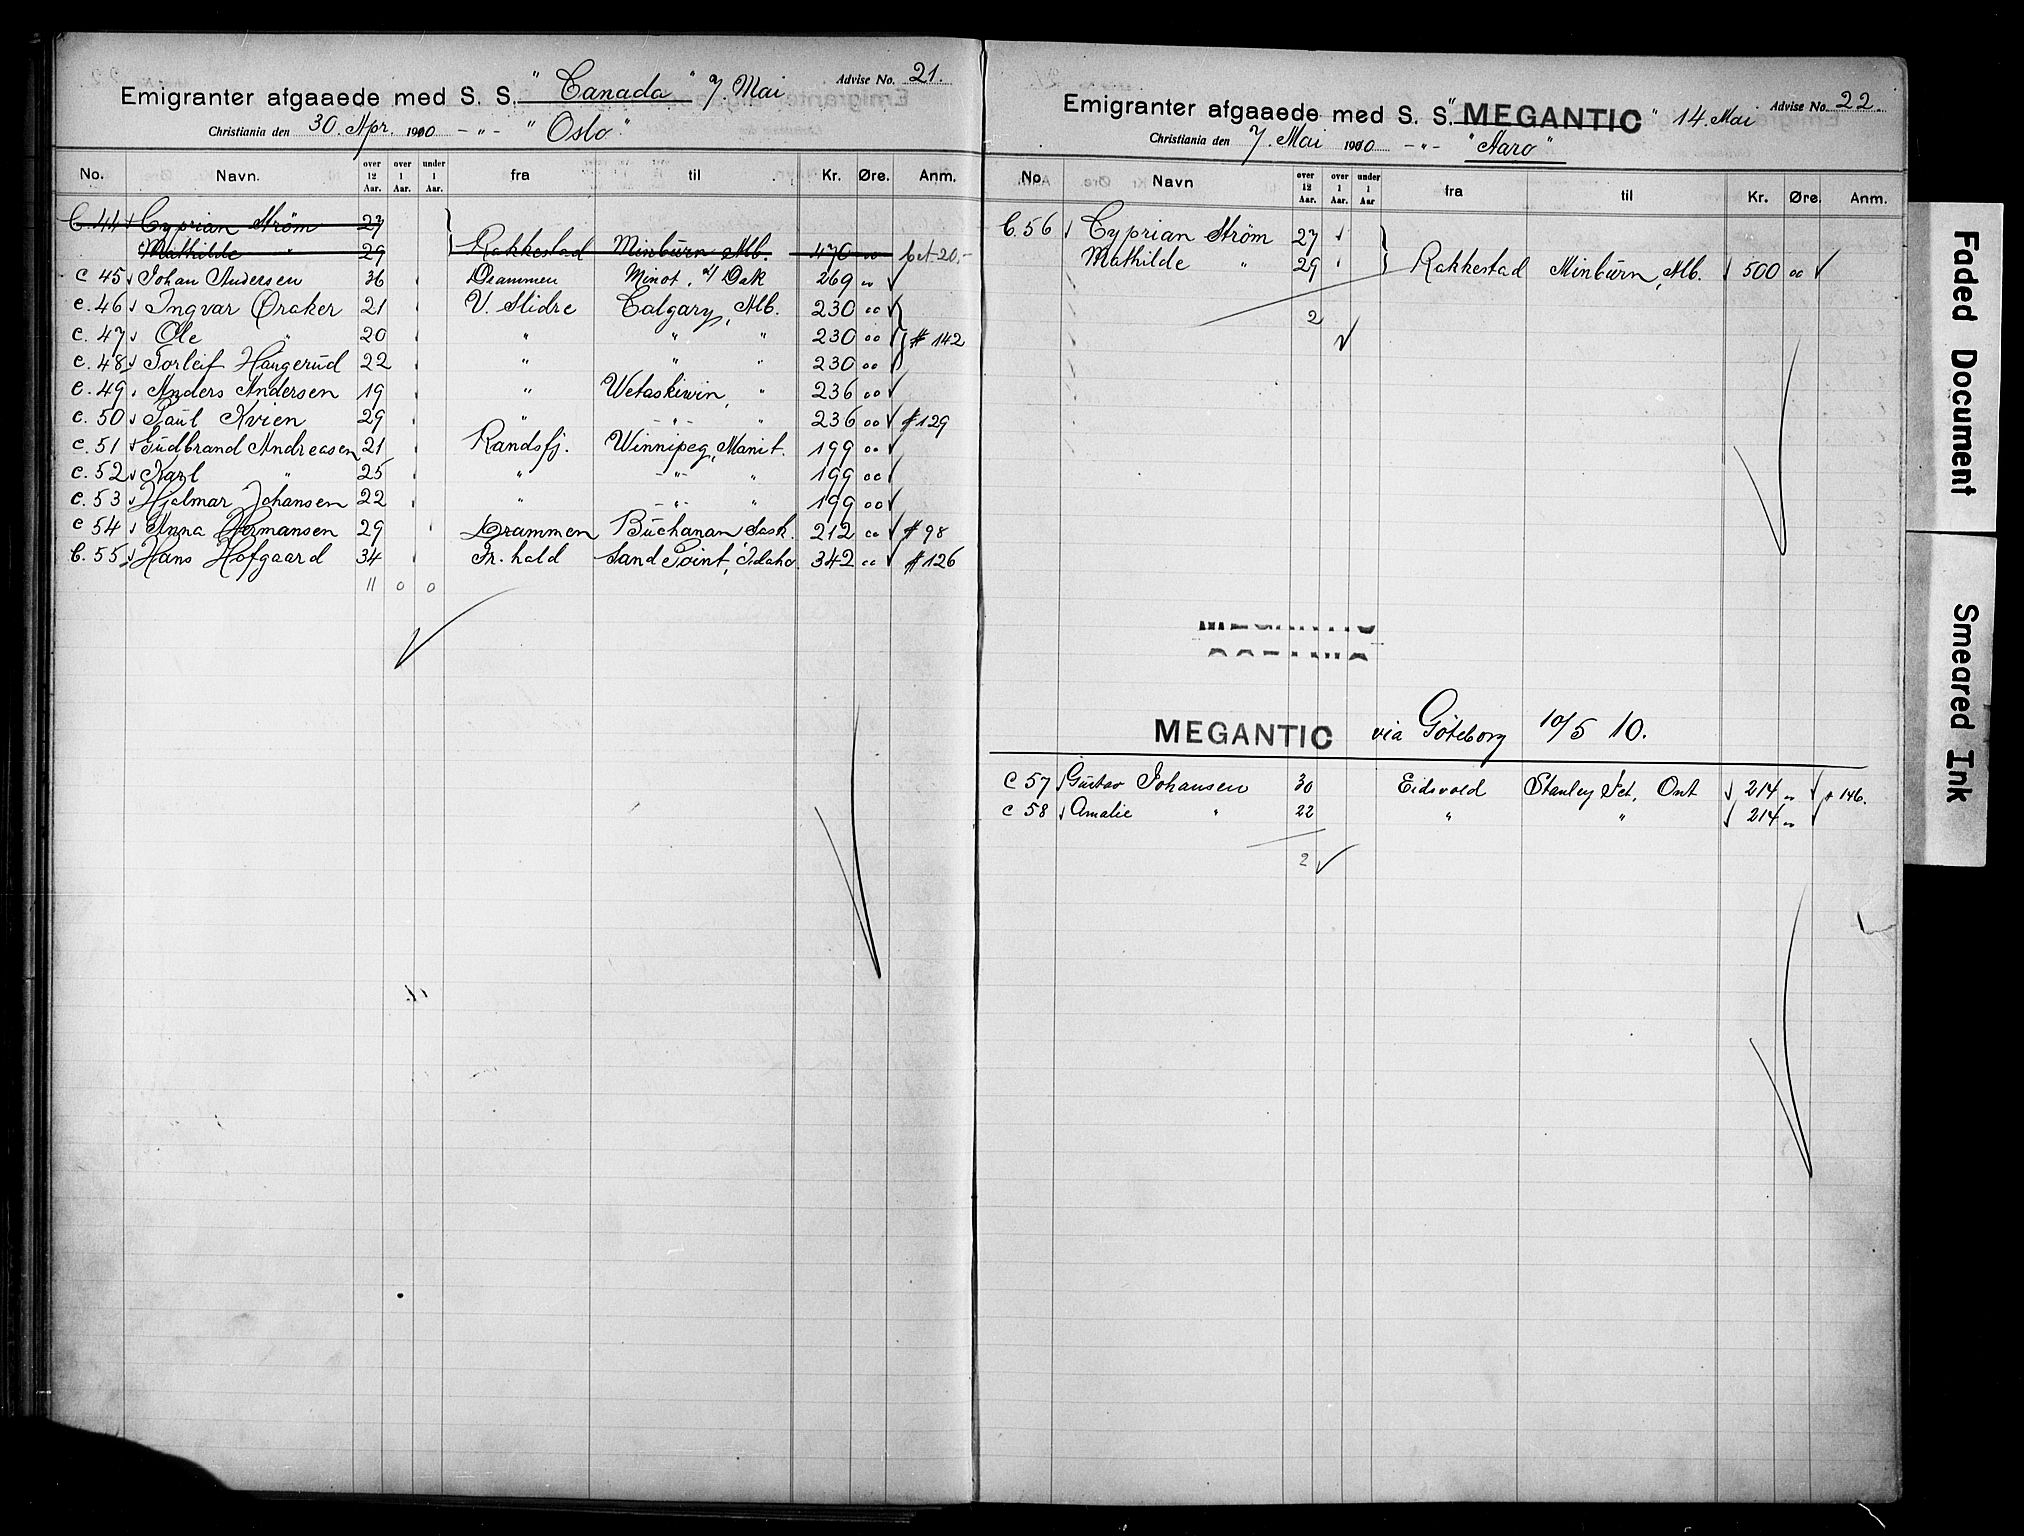 Advise No. 21.
Emigranter afgaaede med S. S. "Canada" 7. Mai
Christiania den 30. Apr. 1910 -"- "Oslo"
No. Navn. over 12 Aar. over 1 Aar. under 1 Aar. fra til Kr. Øre. Anm.
C. 44 Cyprian Strøm 27
Mathilde " 29 Rakkestad Minburn Alb. 470 00
C 45 Johan Andersen 36 Drammen Minot, Dak 269 "
C. 46 Ingvar Øraker 21 V. Slidre Calgary, Alb. 230 00
C. 47 Ole " 20 " " " 230 00 # 142
C. 48 Torleif Haugerud 22 " " " 230 00
C. 49 Anders Andersen 19 " Wetaskiwin, " 236 00
C. 50 Paul Kvien 29 " -"- " 236 00 # 129
C. 51 Gudbrand Andreasen 21 Randsfj. Winnipeg, Manit. 199 00
C. 52 Karl " 25 " -"- " 199 00
C. 53 Hjalmar Johansen 22 " -"- " 199 00
C 54 Anna Hermansen 29 Drammen Buchanan Sask. 212 00 # 98
C. 55 Hans Hofgaard 34 Fr. hald Sand Point, Idaho 342 00 # 126
11 0 0
Advise No. 22.
Emigranter afgaaede med S. S. "MEGANTIC" 14. Mai
Christiania den 7. Mai 1910 -"- "Aaro"
No. Navn over 12 Aar. over 1 Aar. under 1 Aar fra til Kr. Øre. Anm.
C. 56 Cyprian Strøm 27
Mathilde " 29 Rakkestad Minburn, Alb. 500 00
2
MEGANTIC
MEGANTIC via Göteborg 10/5 10.
C 57 Gustav Johansen 30 Eidsvold Stanley Jct, Ont 214 " # 146.
C 58 Amalie " 22 " " 214 "
2
Faded Document
Smeared Ink